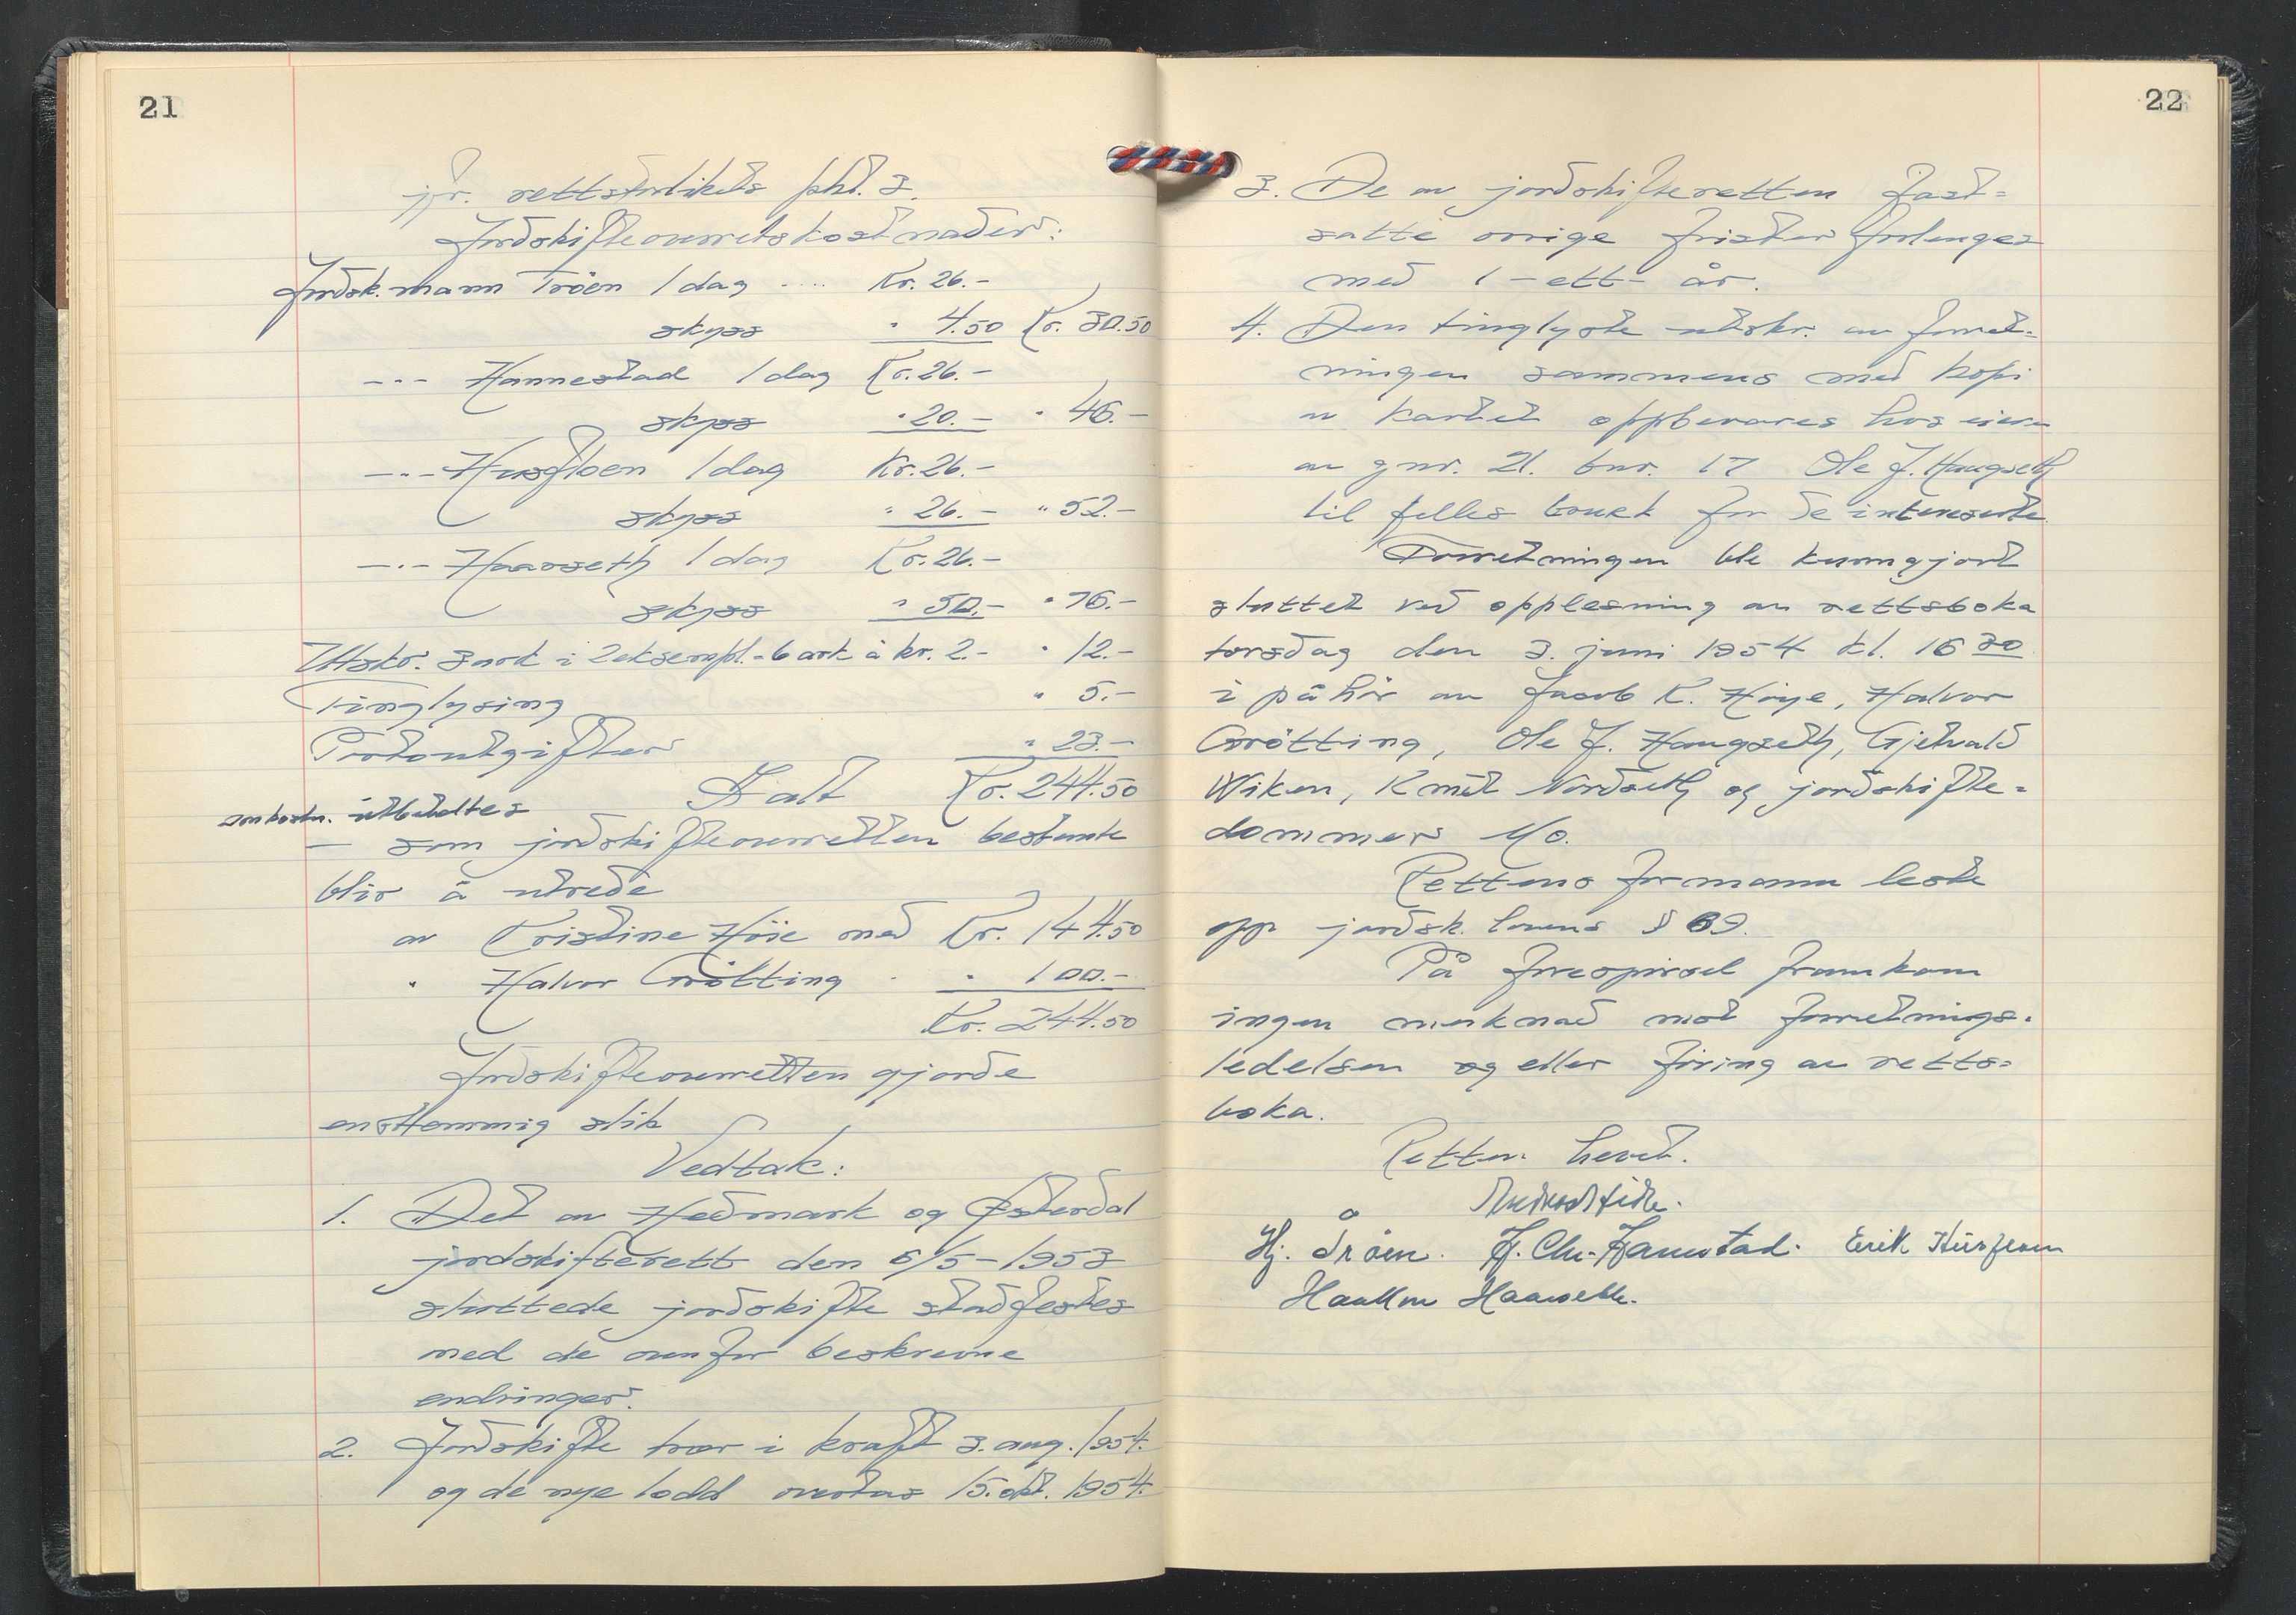 21
jfr. rettsforlikets pkt. 3.
Jordskifteoverretskostnader:
Jordsk.mann Tröen 1 dag .... Kr. 26.-
skyss " 4.50 Kr. 30.50
-"- Hannestad 1 dag Kr. 26.-
skyss " 20.- " 46.-
-"- Husfloen 1 dag Kr. 26.-
skyss " 26.- " 52.-
-"- Haarseth 1 dag Kr. 26.-
skyss " 50.- " 76.-
Utskr. 3 ark i 2 eksempl. = 6 ark á kr. 2.- " 12.-
Tinglysing " 5.-
Portoutgifter " 23.-
I alt Kr. 244.50
omkostn. utbetaltes
– som jordskifteoverretten bestemte
blir å utrede
av Kristine Höie med Kr. 144.50
" Halvor Grötting " " 100.-
Kr. 244.50
Jordskifteoverretten gjorde
enstemmig slik
Vedtak:
1. Det av Hedmark og Østerdal
jordskifterett den 6/5-1953
sluttede jordskifte stadfestes
med de ovenfor beskrevne
endringer.
2. Jordskifte trær i kraft 3. aug. 1954.
og de nye lodd overtas 15. okt. 1954.
22
3. De av jordskifteretten fast=
satte övrige frister forlenges
med 1 -ett- år.
4. Den tinglyste utskr. av forret=
ningen sammens med kopi
av kartet oppbevares hos eieren
av gnr. 21. bnr. 17 Ole J. Haugseth
til felles bruk for de interesserte.
Forretningen ble kunngjort
sluttet ved opplesning av rettsboka
torsdag den 3. juni 1954 kl. 16 30
i påhör av Jacob K. Höye, Halvor
Grötting, Ole J. Haugseth, Gjetvald
Wiken, Knut Nordseth og jordskifte=
dommer Mo.
Rettens formann leste
opp jordsk.lovens § 69.
På forespörsel framkom
ingen merknad mot forretnings=
ledelsen og eller föring av retts=
boka.
Retten hevet.
Hj. Tröen. H. Chr. Hannestad. Erik Husfloen
Haakon Haarseth.